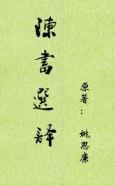 陳書選譯
原著：姚思廉